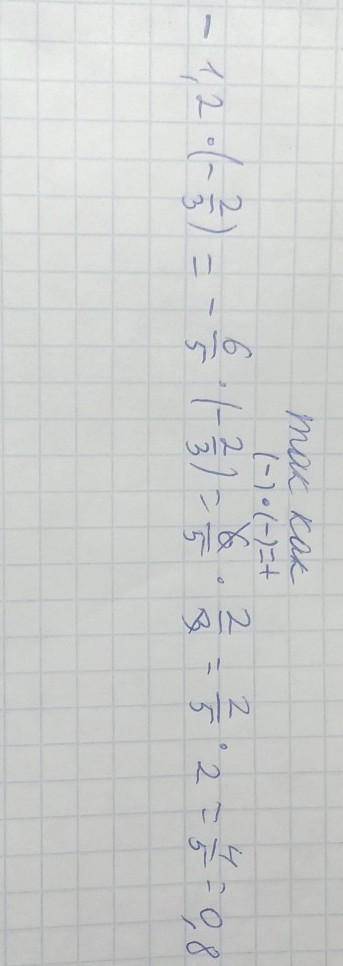 так как
(-)·(-)=+
-1,2·(-2/3) = -6/5·(-2/3) = 6/5·2/3 = 2/5·2 = 4/5 = 0,8